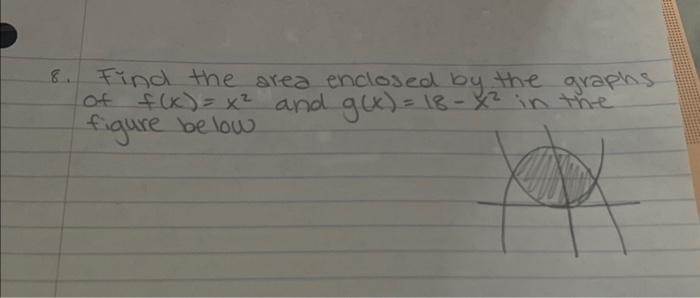 8. Find the area enclosed by the graphs
of f(x) = x² and g(x) = 18 - x² in the
figure below